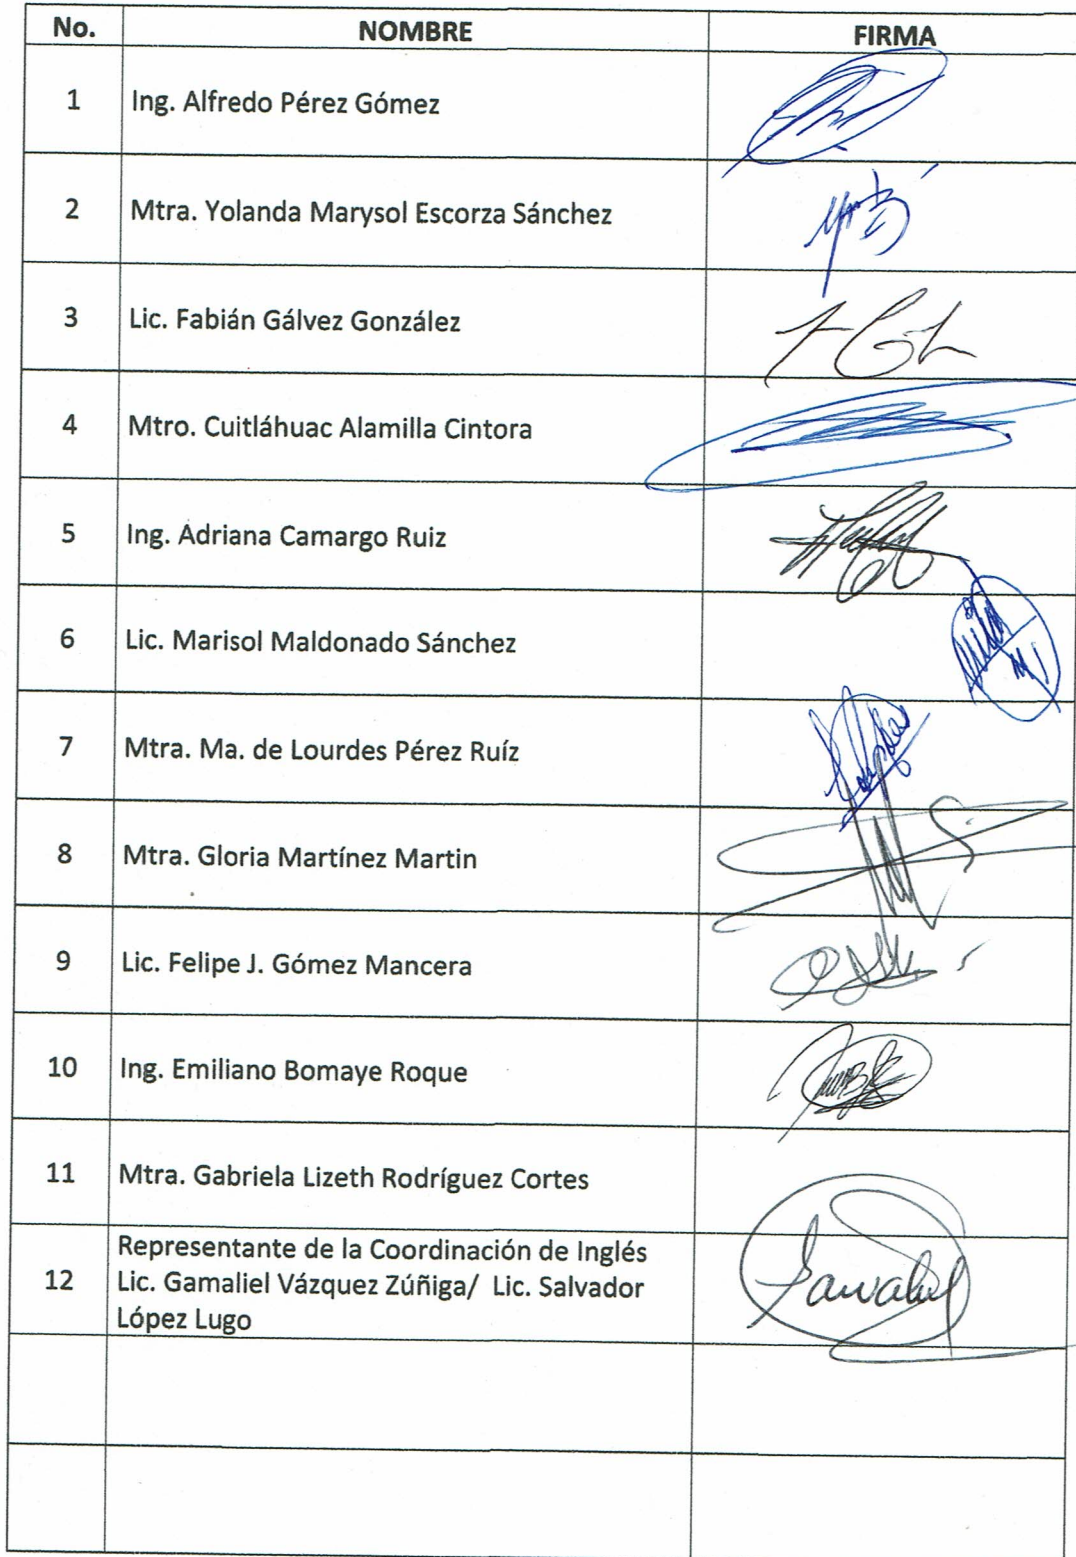 No. NOMBRE FIRMA
1 Ing. Alfredo Pérez Gómez
2 Mtra. Yolanda Marysol Escorza Sánchez
3 Lic. Fabián Gálvez González
4 Mtro. Cuitláhuac Alamilla Cintora
5 Ing. Adriana Camargo Ruiz
6 Lic. Marisol Maldonado Sánchez
7 Mtra. Ma. de Lourdes Pérez Ruíz
8 Mtra. Gloria Martínez Martin
9 Lic. Felipe J. Gómez Mancera
10 Ing. Emiliano Bomaye Roque
11 Mtra. Gabriela Lizeth Rodríguez Cortes
Representante de la Coordinación de Inglés
12 Lic. Gamaliel Vázquez Zúñiga/ Lic. Salvador
López Lugo